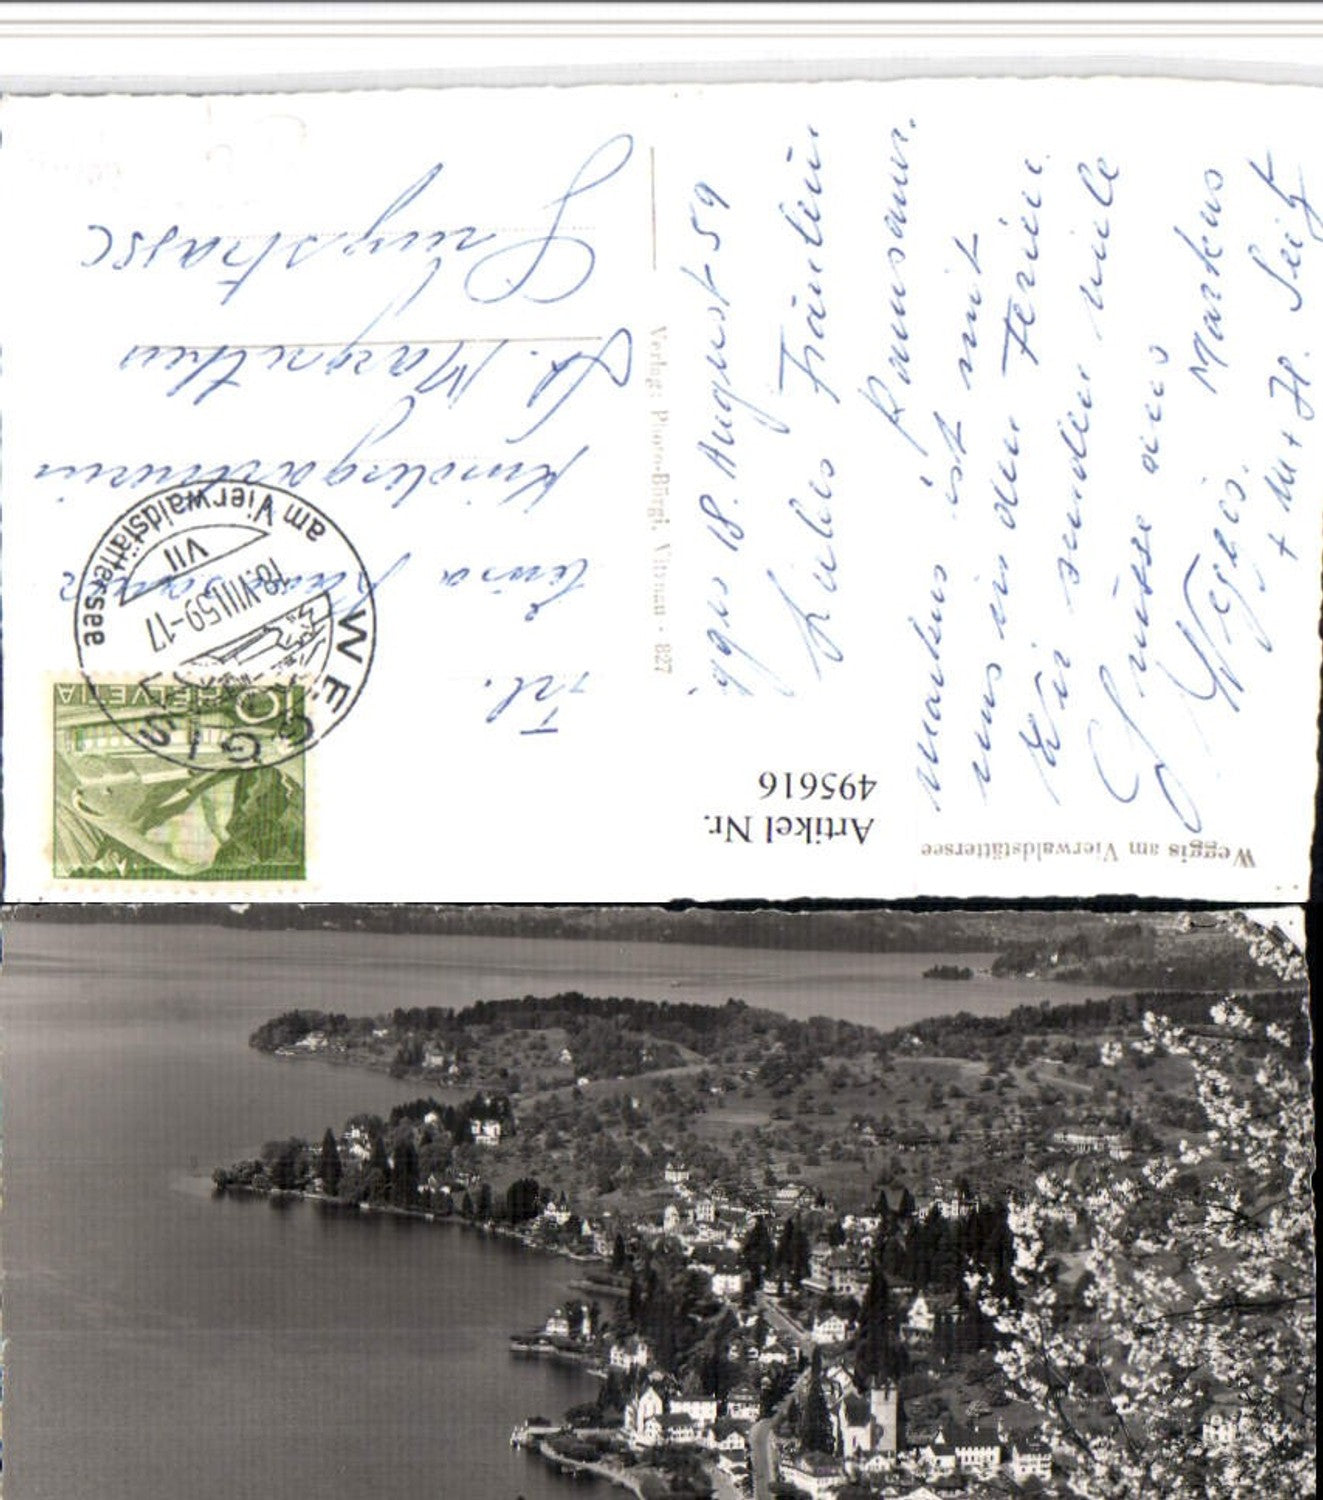 Weggis am Vierwaldstättersee
Artikel Nr.
495616
Verlag: Photo-Bürgi, Vitznau - 827
HELVETIA
10
WEGGIS
18.VIII.59-17
VII
am Vierwaldstättersee
18. August 59
Liebes Fräulein
Ramsauer.
Markus ist mit
uns in den Ferien.
Wir senden viele
Grüsse aus
Weggis. Markus
+ M + H. Seitz
Frl.
Kindergärtnerin
St. Margrethen